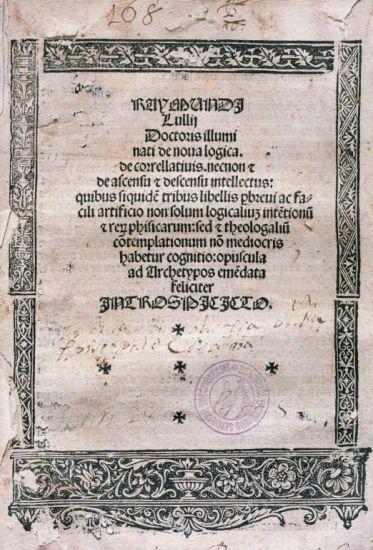 168
RAYMUNDI
Lullij
Doctoris illumi
nati de noua logica.
de correllatiuis. necnon ⁊
de ascensu ⁊ descensu intellectus:
quibus siquidē tribus libellis pbreui ac fa
cili artificio non solum logicaliuꝫ intētionū
⁊ reꝝ phisicarum: sed ⁊ theologaliū
cōtemplationum nō mediocris
habetur cognitio: opuscula
ad Archetypos emēdata
feliciter
INTROSPICITO.